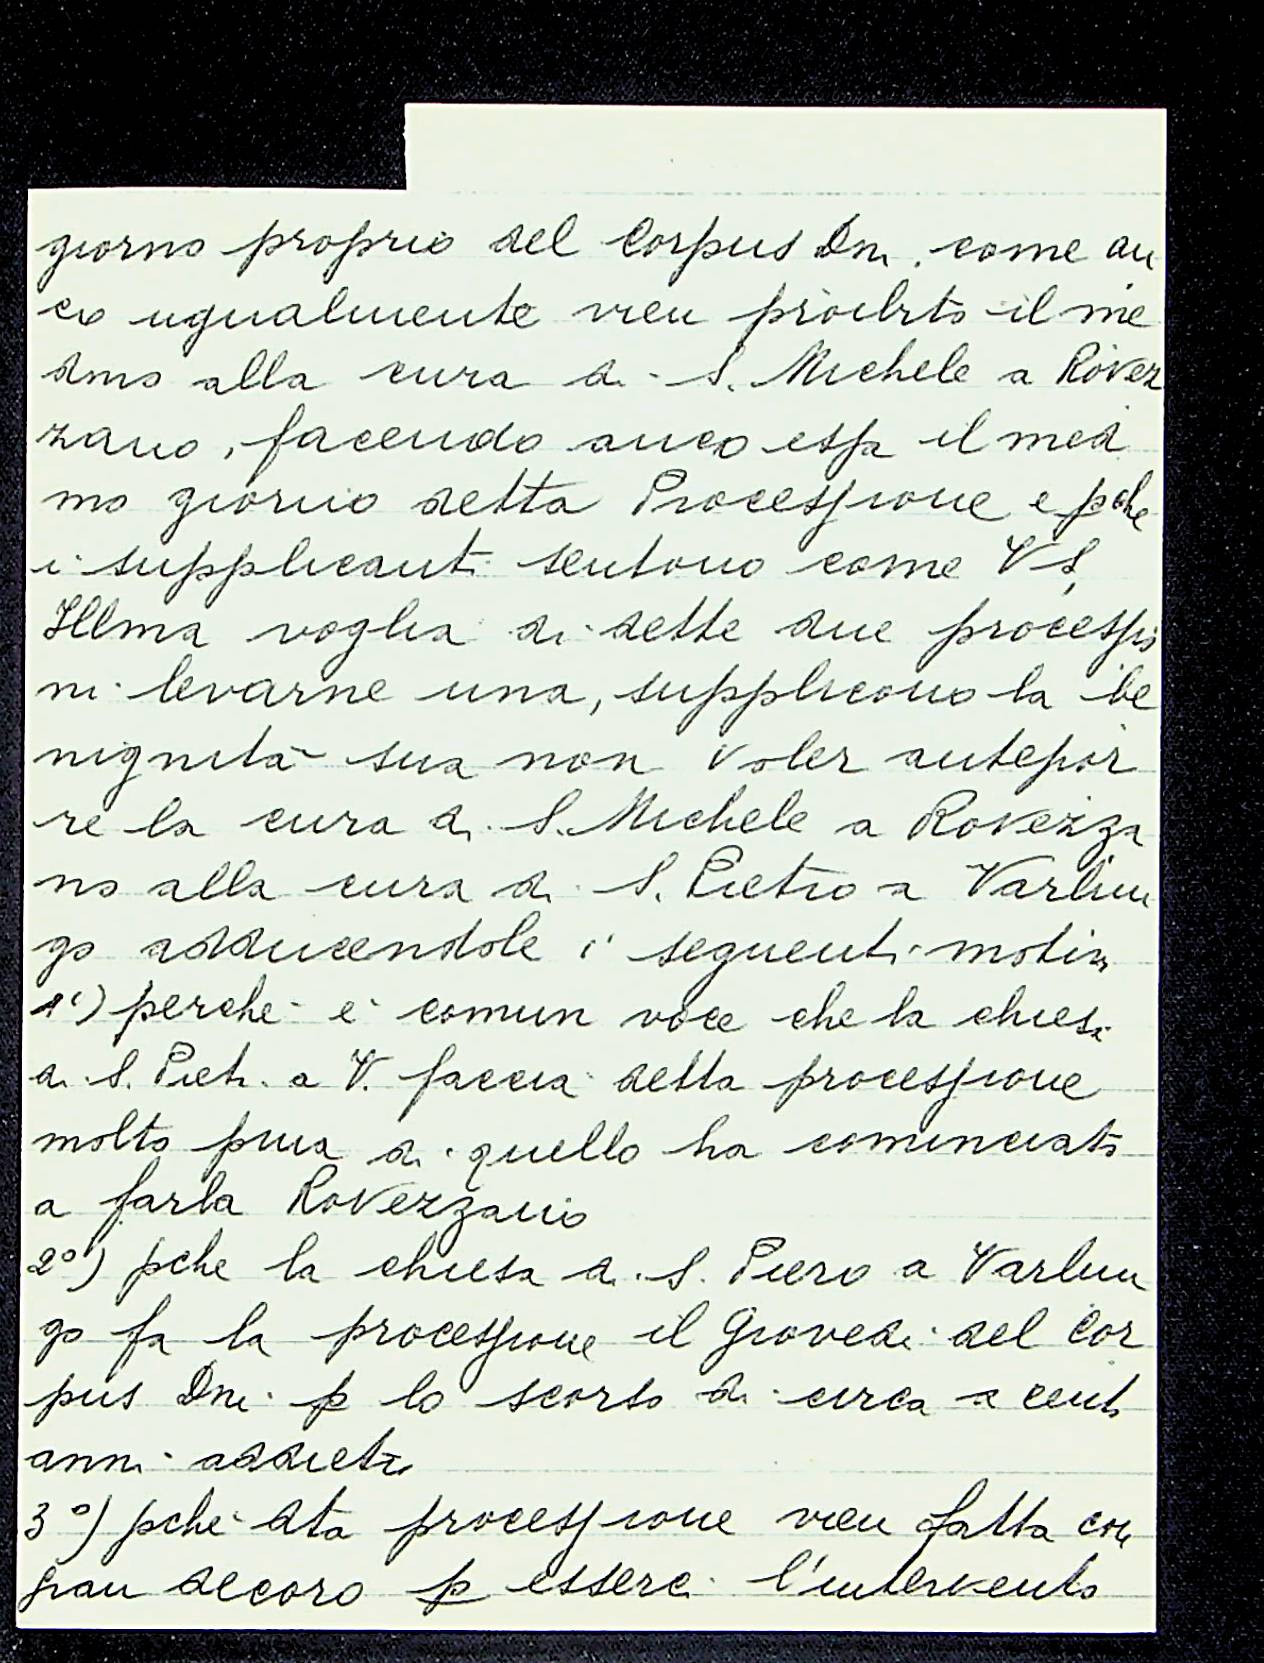 giorno proprio del Corpus Dni. come an
co ugualmente vien proibito il me
dmo alla cura di S. Michele a Rovez
zano, facendo anco essa il med
mo giorno detta Processione e pche
i supplicanti sentono come VS.
Illma voglia di dette due processio
ni levarne una, supplicono la be
nignità sua non voler antepor
re la cura di S. Michele a Rovezza
no alla cura di S. Pietro a Varlun
go adducendole i seguenti motivi
1°) perche è comun voce che la chiesa
di S. Piet. a V. faccia detta processione
molto pria di quello ha cominciato
a farla Rovezzano
2°) pche la chiesa di S. Piero a Varlun
go fa la processione il Giovedi del Cor
pus Dni. p lo scorso di circa a cent
anni addietr
3°) pche dta processione vien fatta con
gran decoro p essere l'intervento